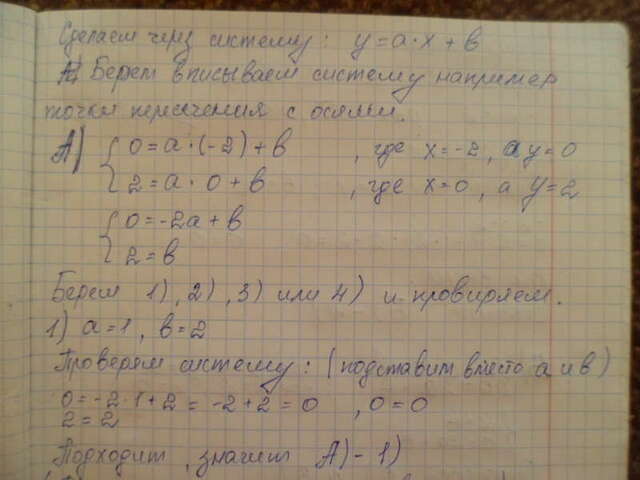 Сделаем через систему: y=a·x+b
Берем вписываем систему например
точки пересечения с осями.
А) { 0=a·(-2)+b , где x=-2, а y=0
2=a·0+b , где x=0, а y=2
{ 0=-2a+b
2=b
Берем 1), 2), 3) или 4) и провиряем.
1) a=1, b=2
Проверям систему: (подставим вместо a и b)
0=-2·1+2=-2+2=0 , 0=0
2=2
Подходит, значит А)-1)